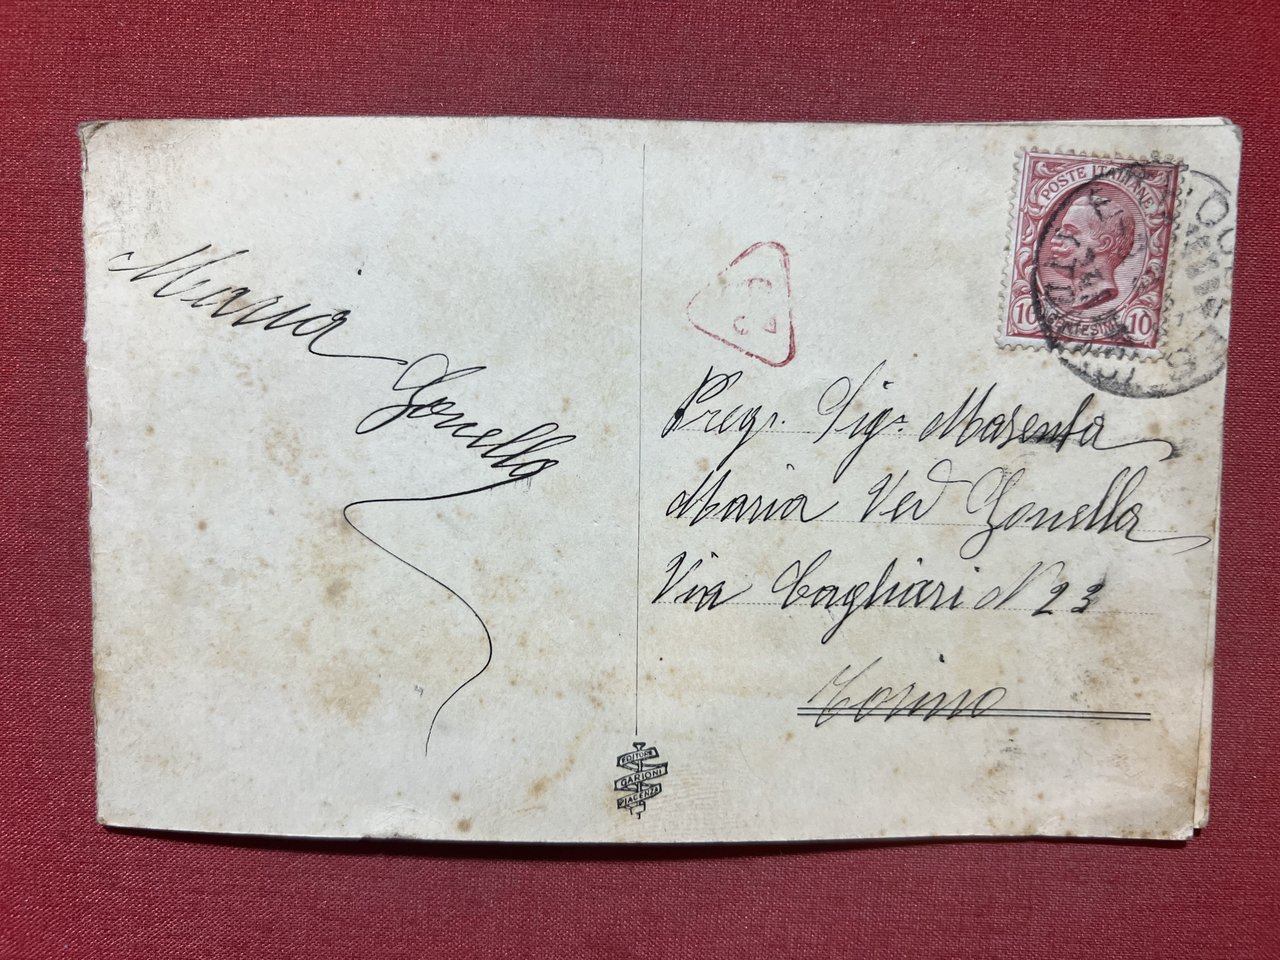 Maria
Zonello
POSTE ITALIANE
10 CENTESIMI 10
Preg. Sig. Masenta
Maria Ved Zonello
Via Cagliari N 23
Torino
EDITORE
GARIONI
PIACENZA